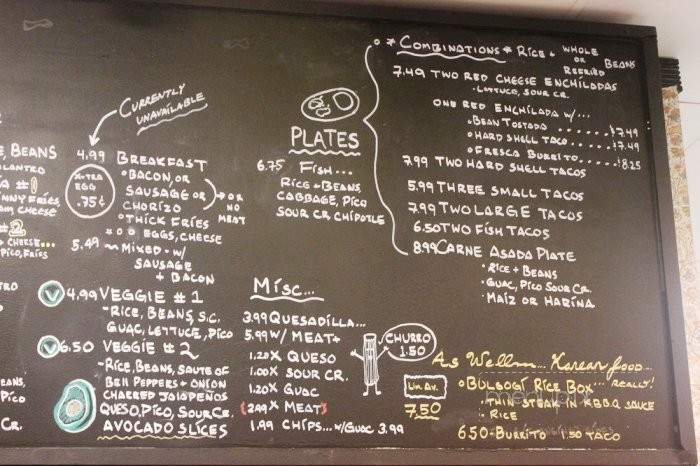 E, BEANS
ILANTRO
A #1
INNY FRIES,
AM CHEESE
#2
+ CHEESE...
PICO, FRIES
EANS,
PICO
CR.
CURRENTLY
UNAVAILABLE
4.99 BREAKFAST
X-TRA
EGG
.75¢
• BACON, OR
SAUSAGE OR
CHORIZO
→ OR
NO
MEAT
• THICK FRIES
EGGS, CHEESE
5.49 ~ MIXED - W/
SAUSAGE
+ BACON
V 4.99 VEGGIE #1
- RICE, BEANS, S.C.
GUAC, LETTUCE, PICO
V 6.50 VEGGIE #2
- RICE, BEANS, SAUTE OF
BELL PEPPERS + ONION
CHARRED JALAPEÑOS
QUESO, PICO, SOUR CR.
AVOCADO SLICES
PLATES
6.75 FISH...
RICE + BEANS,
CABBAGE, PICO
SOUR CR, CHIPOTLE
* COMBINATIONS * RICE + WHOLE
OR
REFRIED
BEANS
7.49 TWO RED CHEESE ENCHILADAS
• LETTUCE, SOUR CR.
ONE RED ENCHILADA W/...
• BEAN TOSTADA ...... $7.49
• HARD SHELL TACO ...... $7.49
• FRESCA BURRITO ...... $8.25
7.99 TWO HARD SHELL TACOS
5.99 THREE SMALL TACOS
7.99 TWO LARGE TACOS
6.50 TWO FISH TACOS
8.99 CARNE ASADA PLATE
• RICE + BEANS
• GUAC, PICO SOUR CR.
• MAIZ OR HARINA
MISC...
3.99 QUESADILLA...
5.99 W/ MEAT+
1.20 X QUESO
1.00 X SOUR CR.
1.20 X GUAC
(2.99 X MEAT)
1.99 CHIPS... W/GUAC 3.99
CHURRO
1.50
AS WELLM... KOREAN FOOD...
7.50
• BULGOGI RICE BOX... REALLY!
• THIN STEAK IN K.B.B.Q SAUCE
• RICE
6.50 - BURRITO 1.50 TACO